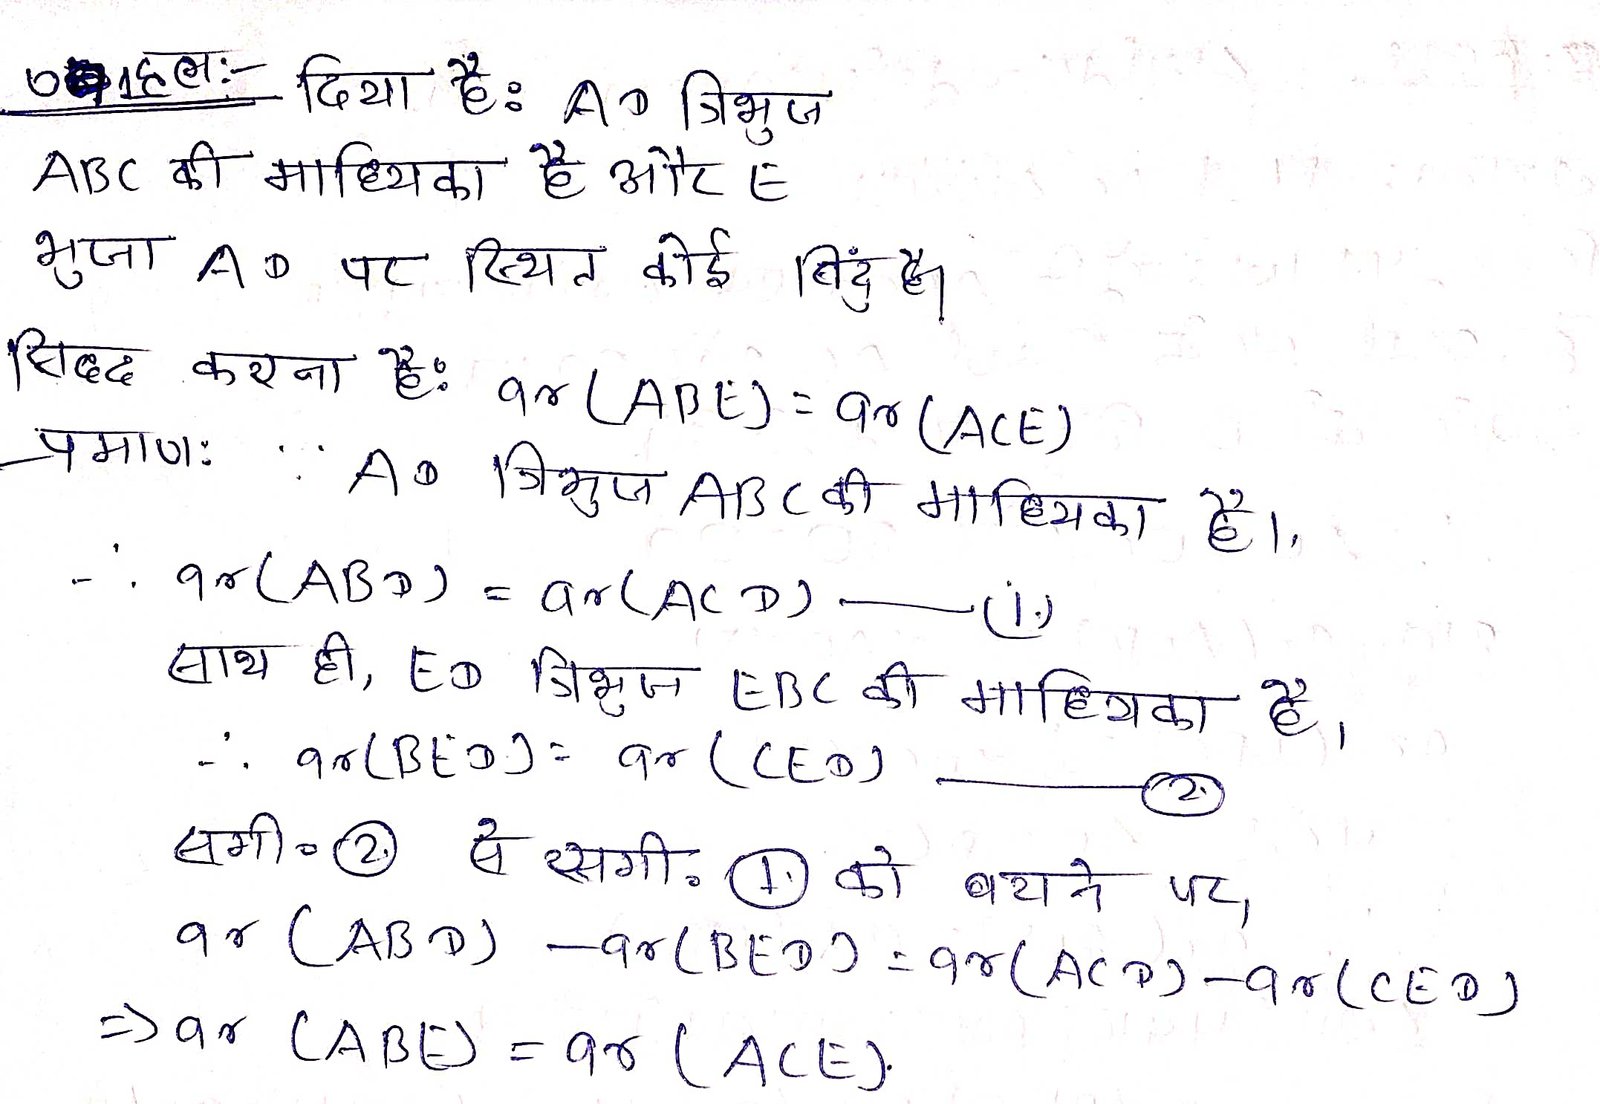 1 हल:- दिया है: AD त्रिभुज
ABC की माध्यिका है और E
भुजा AD पर स्थित कोई बिंदु है।
सिद्ध करना है: ar(ABE) = ar(ACE)
प्रमाण: ∵ AD त्रिभुज ABC की माध्यिका है।
∴ ar(ABD) = ar(ACD) — (1.)
साथ ही, ED त्रिभुज EBC की माध्यिका है,
∴ ar(BED) = ar(CED) — (2.)
समी॰ (2.) से समी॰ (1.) को पर,
ar (ABD) - ar(BED) = ar(ACD) - ar(CED)
=> ar (ABE) = ar (ACE).